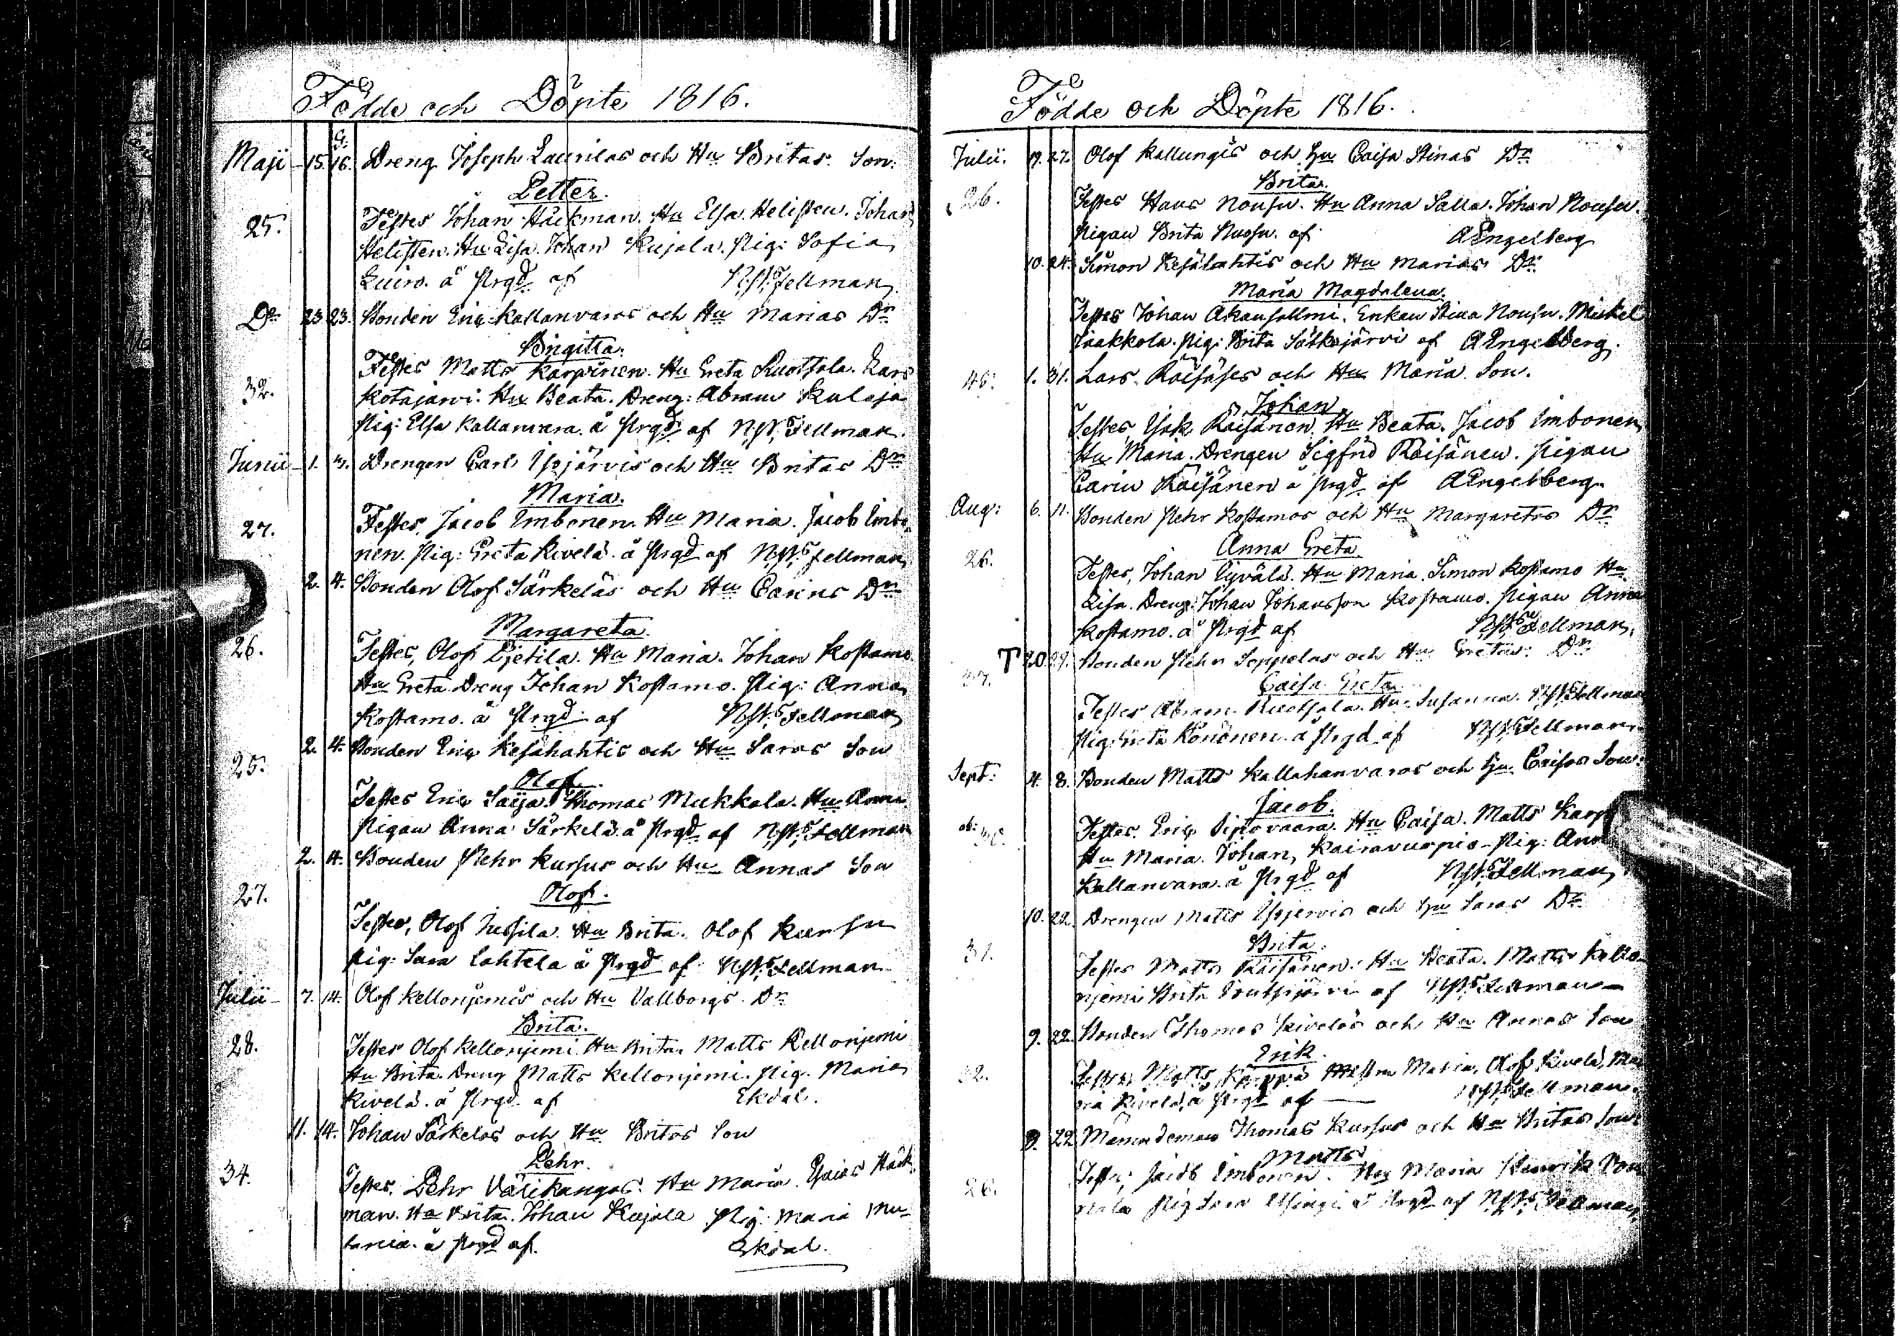 Födde och Döpte 1816.
Maji 15. 16. Dreng Joseph Laurilas och Hu Britas Son.
Petter.
25. Testes Johan Häckman. Hu Elsa. Helisten. Johan
Helisten. Hu Lisa. Johan Kujala. Pig: Sofia
å Prgd af Fellman
Do 23 23. Bonden Eric Kallanvaras och Hu Marias Dr
Brigitta.
32. Testes Matts Karppinen. Hu Greta Ruotsala. Lars
Kotajärvi. Hu Beata. Dreng: Abram Kuloja
Pig: Elsa Kallanvara å Prgd af Fellman.
Junii 1. 3. Drengen Carl Ylijärvis och Hu Britas Dr
Maria.
27. Testes, Jacob Imbonen. Hu Maria. Jacob Imbo-
nen. Pig: Greta Kivelä. å Prgd af Fellman
2. 4. Bonden Olof Särkeläs och Hu Carins Dr
Margareta.
26. Testes, Olof Pjetila. Hu Maria. Johan Kostamo.
Hu Greta Dreng Johan Kostamo. Pig: Anna
Kostamo. å Prgd af Fellman
2. 4. Bonden Eric Kesälahtis och Hu Saras Son
Olof.
25. Testes Eric Saija. Thomas Mukkala. Hu Anna
Pigan Anna Särkelä å Prgd af Fellman
2. 4. Bonden Pehr Kursus och Hu Annas Son
Olof.
27. Testes, Olof Jussila. Hu Brita. Olof Kursu
Pig: Sara Lahtela å Prgd af Fellman
Julii 7. 14. Olof Kellonjemis och Hu Vallborgs Dr
Brita.
28. Testes Olof Kellonjemi Hu Brita. Matts Kellonjemi
Hu Brita. Dreng Matts Kellonjemi. Pig. Maria
Kivelä. å Prgd af Ekdal.
11. 14. Johan Särkelas och Hu Britas Son
Pehr.
34. Testes. Pehr Välikangas. Hu Maria. Esaias Häck-
man. Hu Brita. Johan Kujala Pig: Maria Mu-
å Prgd af Ekdal.
Födde och Döpte 1816.
Julii. 19. 27. Olof Kallungis och Hu Caisa Stinas Dr
Brita.
26. Testes Hans Nousu. Hu Anna Salla. Johan Nousu.
Pigan Brita Nousu. af A Engelberg
10. 24. Simon Kesälahtis och Hu Marias Dr
Maria Magdalena.
Testes Johan Akansalmi. Enkan Stina Nousu. Mickel
Jaakkola. Pig: Brita Sätkäjärvi af A Engelberg.
46. 1. 31. Lars Räisäses och Hu Maria Son.
Johan
Testes, Räisänen, Hu Beata. Jacob Imbonen,
Hu Maria. Drengen Sigfrid Räisänen. Pigan
Carin Räisänen å Prgd af A Engelberg.
Aug: 6. 11. Bonden Pehr Kostamos och Hu Margaretas Dr
Anna Greta
26. Testes, Johan Hu Maria. Simon Kostamo Hu
Lisa. Dreng: Johan Johansson Kostamo. Pigan Anna
Kostamo. å Prgd af Fellman,
T 20. 29. Bonden Pehr Soppelas och Hu Gretas Dr
37. Caisa Greta
Testes Abram Ruotsala. Hu Susanna. Fellman
Pig: Greta Könönen å Prgd af Fellman
Sept: 4. 8. Bonden Matts Kallahanvaras och Hu Caisas Son:
Jacob.
Testes Eric Hu Caisa. Matts Karp
Hu Maria. Johan, Kairavuopio. Pig: Ann
Kallanvara. å Prgd af Fellman
10. 22. Drengen Matts Ylijervis och Hu Saras Dr
Brita.
31. Testes Matts Räisänen. Hu Beata. Matts Kello-
njemi Brita af Fellman
9. 22. Bonden Thomas Kiveläs och Hu Annas Son
Erik.
32. Testes, Matts Karppa Maria, Olof Kivelä, Ma
ria Kivelä, å Prgd af Fellman
8. 22 Thomas Kursus och Hu Britas Son
Matts
26. Testes, Jacob Imbonen. Hu Maria Henrik
Pig Sara å Prgd af Fellman.